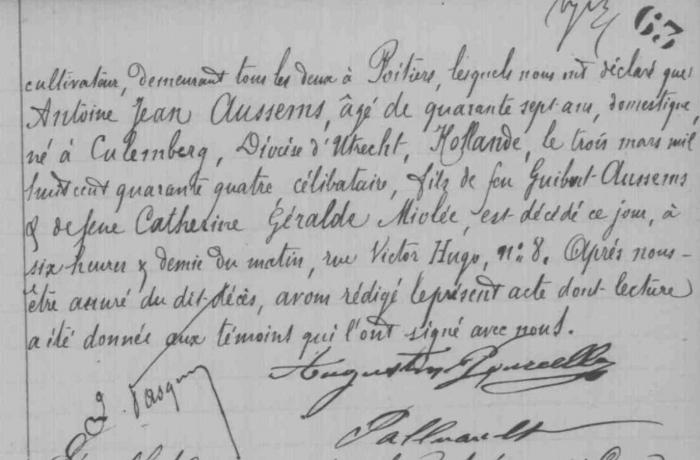 63
cultivateur, demeurant tous les deux à Poitiers, lesquels nous ont déclaré que
Antoine Jean Aussems, âgé de quarante sept ans, domestique,
né à Culemberg, Diocèse d'Utrecht, Hollande, le trois mars mil
huit cent quarante quatre célibataire, fils de feu Guibert Aussems
& de feue Catherine Géralde Miolée, est décédé ce jour, à
six heures & demie du matin, rue Victor Hugo, n° 8. Après nous
être assuré du dit décès, avons rédigé le présent acte dont lecture
a été donnée aux témoins qui l'ont signé avec nous.
Augustin
Pasquier